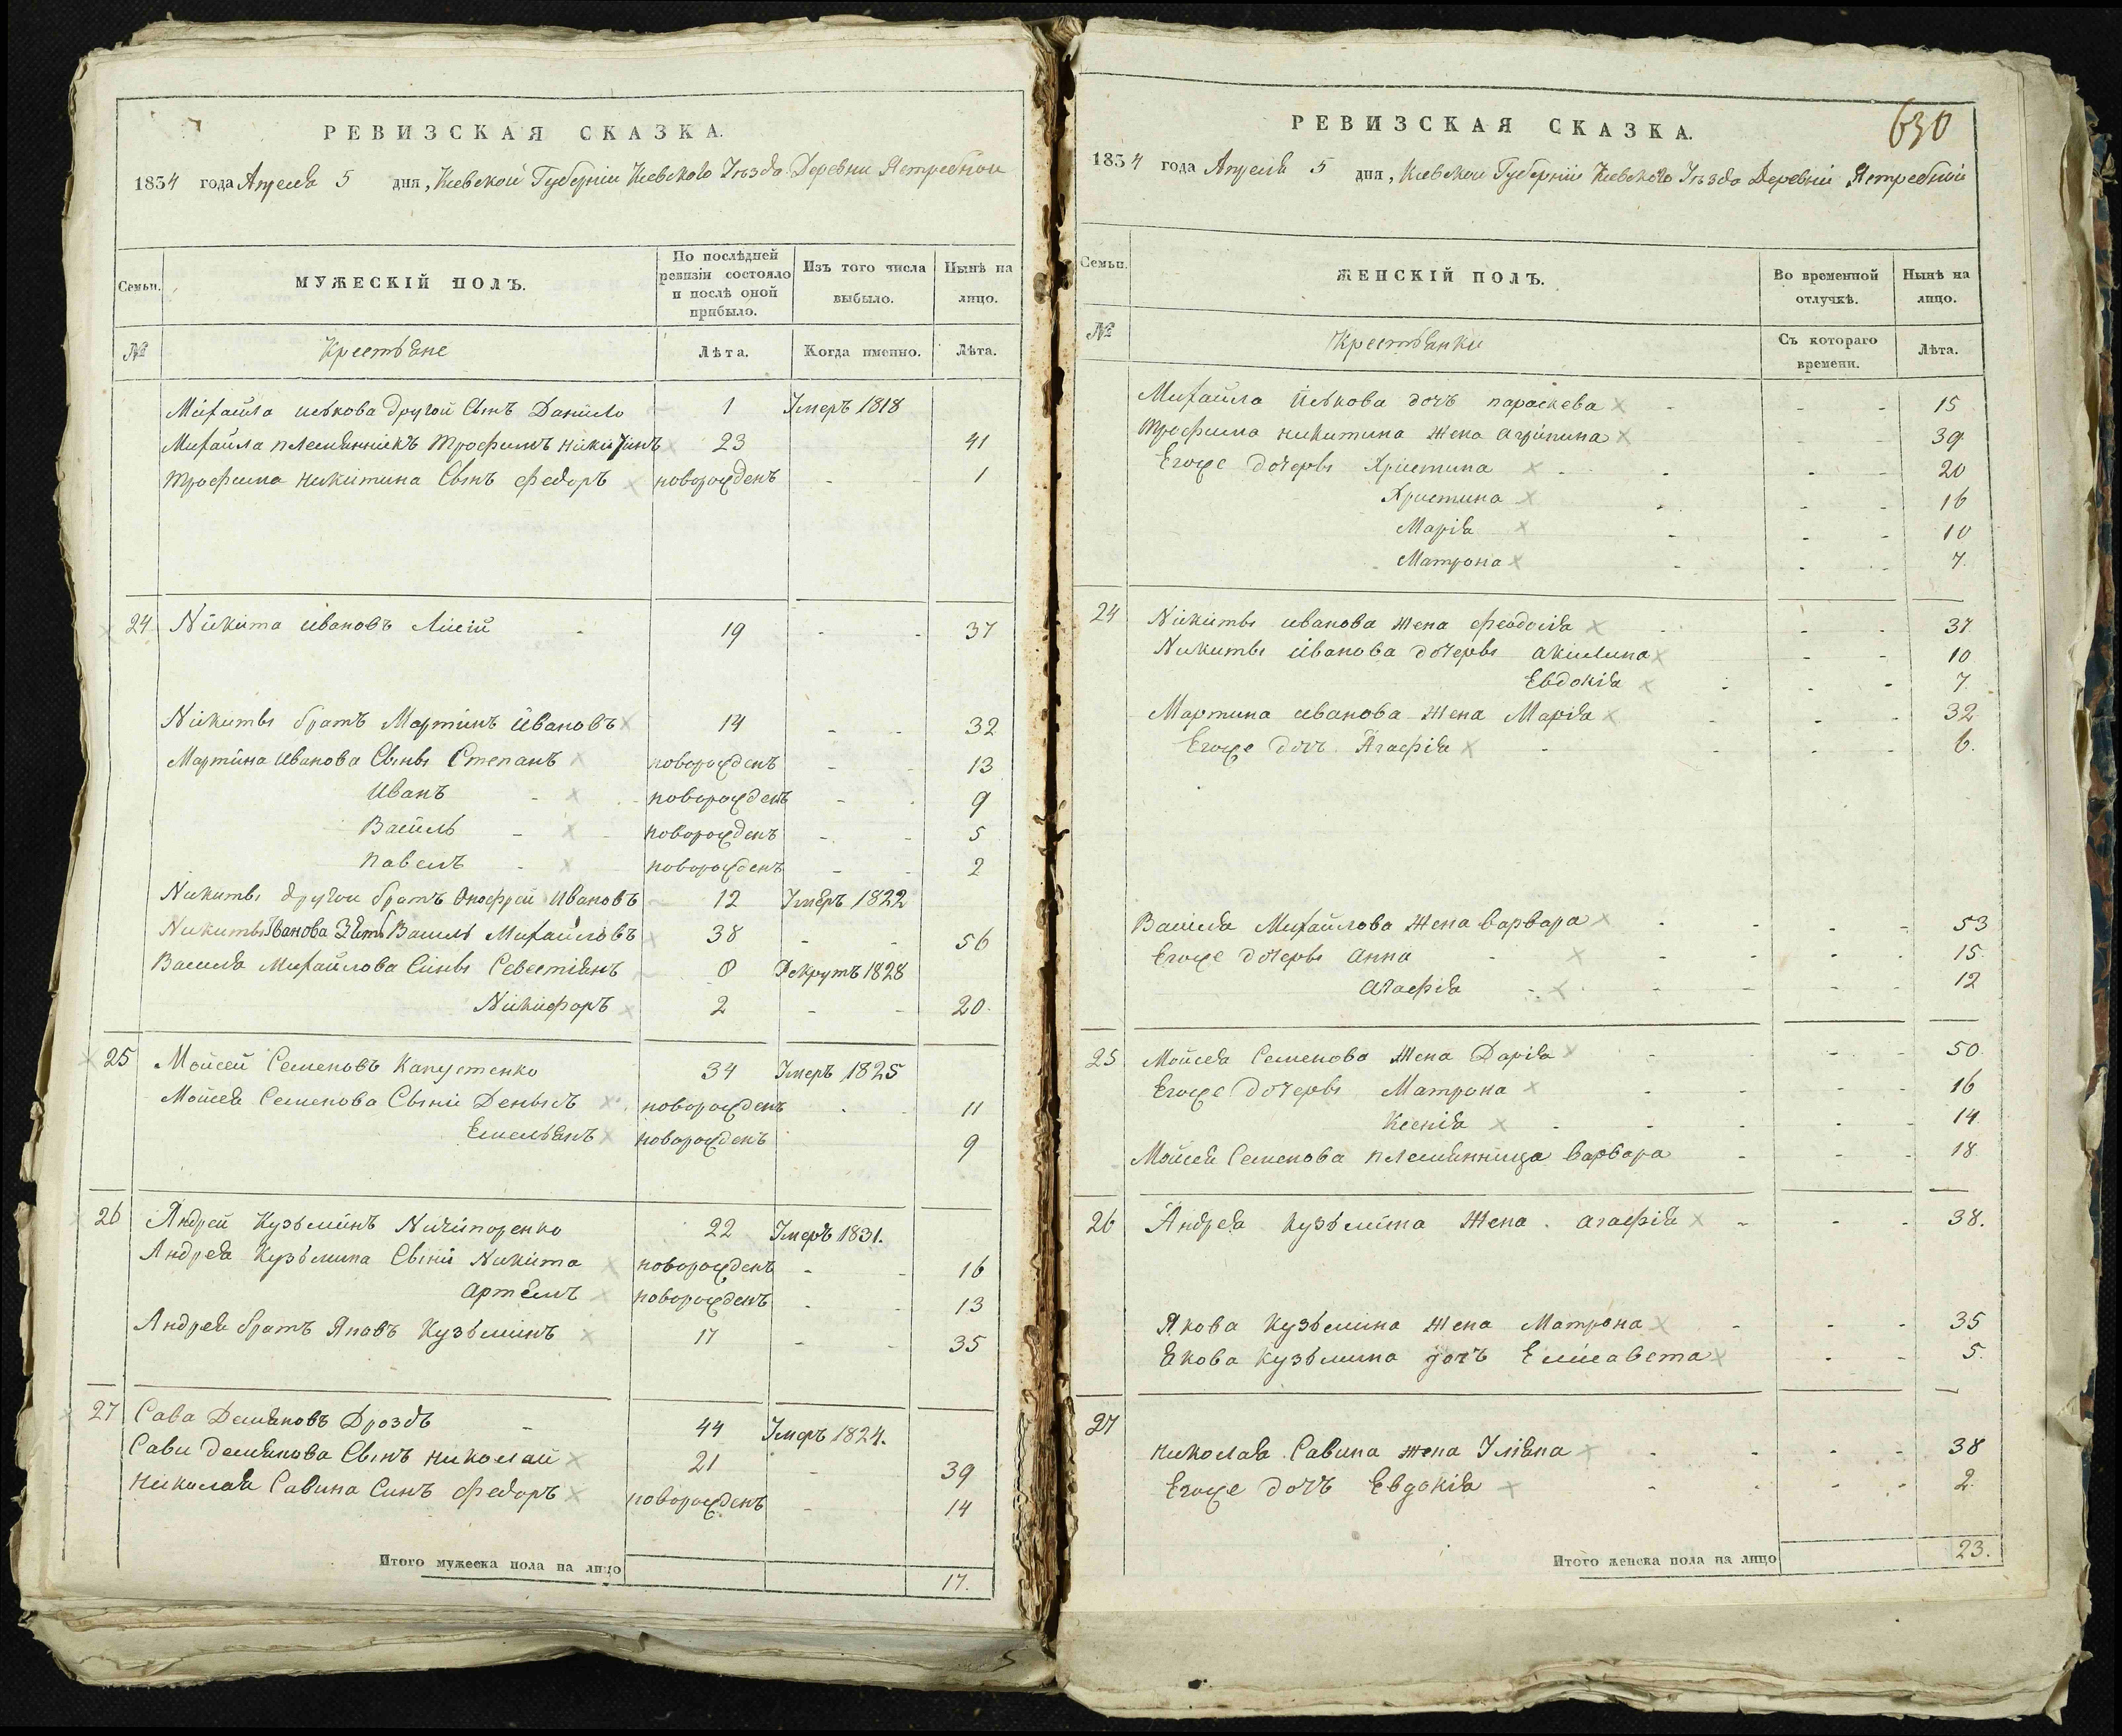 РЕВИЗСКАЯ СКАЗКА.
1834 года Апреля 5 дня, Киевской Губерніи Киевского Уезда Деревни Ястребной
Семьи. МУЖЕСКІЙ ПОЛЪ. По послѣдней ревизіи состояло и послѣ оной прибыло. Изъ того числа выбыло. Нынѣ на лицо.
№ Крестьяне Лѣта. Когда именно. Лѣта.
Михайла иськова другой Сынъ Данило 1 Умеръ 1818
Михайла племянникъ трофимъ никитинъ 23 41
трофима никитина Сынъ федоръ новорожденъ 1
24 Никита ивановъ Лисій 19 37
Никиты братъ Мартинъ ивановъ 14 32
Мартина иванова Сыны Степанъ новорожденъ 13
иванъ новорожденъ 9
Василь новорожденъ 5
павелъ новорожденъ 2
Никиты другой братъ Онофрей ивановъ 12 Умеръ 1822
Никиты иванова Зять Василь Михайловъ 38 56
Василя Михайлова Сины Севестіянъ 0 Рекрутъ 1828
Никифоръ 2 20
25 Мойсей Семеновъ Капустенко 34 Умеръ 1825
Мойсея Семенова Сыни Денысъ новорожденъ 11
Емельянъ новорожденъ 9
26 Андрей Кузьминъ Ничипоренко 22 Умеръ 1831.
Андрея Кузьмина Сыни Никита новорожденъ 16
артемъ новорожденъ 13
Андрея братъ Яковъ Кузьминъ 17 35
27 Сава Демяновъ Дроздъ 44 Умеръ 1824.
Сави демянова Сынъ николай 21 39
николая Савина Синъ федоръ новорожденъ 14
Итого мужеска пола на лицо 17.
630
РЕВИЗСКАЯ СКАЗКА.
1834 года Апреля 5 дня, Киевской Губерніи Киевского Уезда Деревни Ястребной
Семьи. ЖЕНСКІЙ ПОЛЪ. Во временной отлучкѣ. Нынѣ на лицо.
№ Крестьянки Съ котораго времени. Лѣта.
Михайла иськова дочъ параскева 15
трофима никитина жена агрипина 39
Егоже дочеры Христина 20
Христина 16
Марія 10
Матрона 7
24 Никиты иванова жена феодосія 37
Никиты иванова дочеры акилина 10
Евдокія 7
Мартина иванова жена Марія 32
Егоже дочъ Агафія 6.
Василя Михайлова жена варвара 53
Егоже дочеры анна 15
агафія 12
25 Мойсея Семенова жена Дарія 50
Егоже дочеры Матрона 16
Ксенія 14
Мойсея Семенова племянница варвара 18
26 Андрея кузьмина жена агафія 38.
Якова Кузьмина жена Матрона 35
Якова кузьмина дочъ Елисавета 5
27
николая Савина жена Уляна 38
Егоже дочъ Евдокія 2
Итого женска пола на лицо 23.